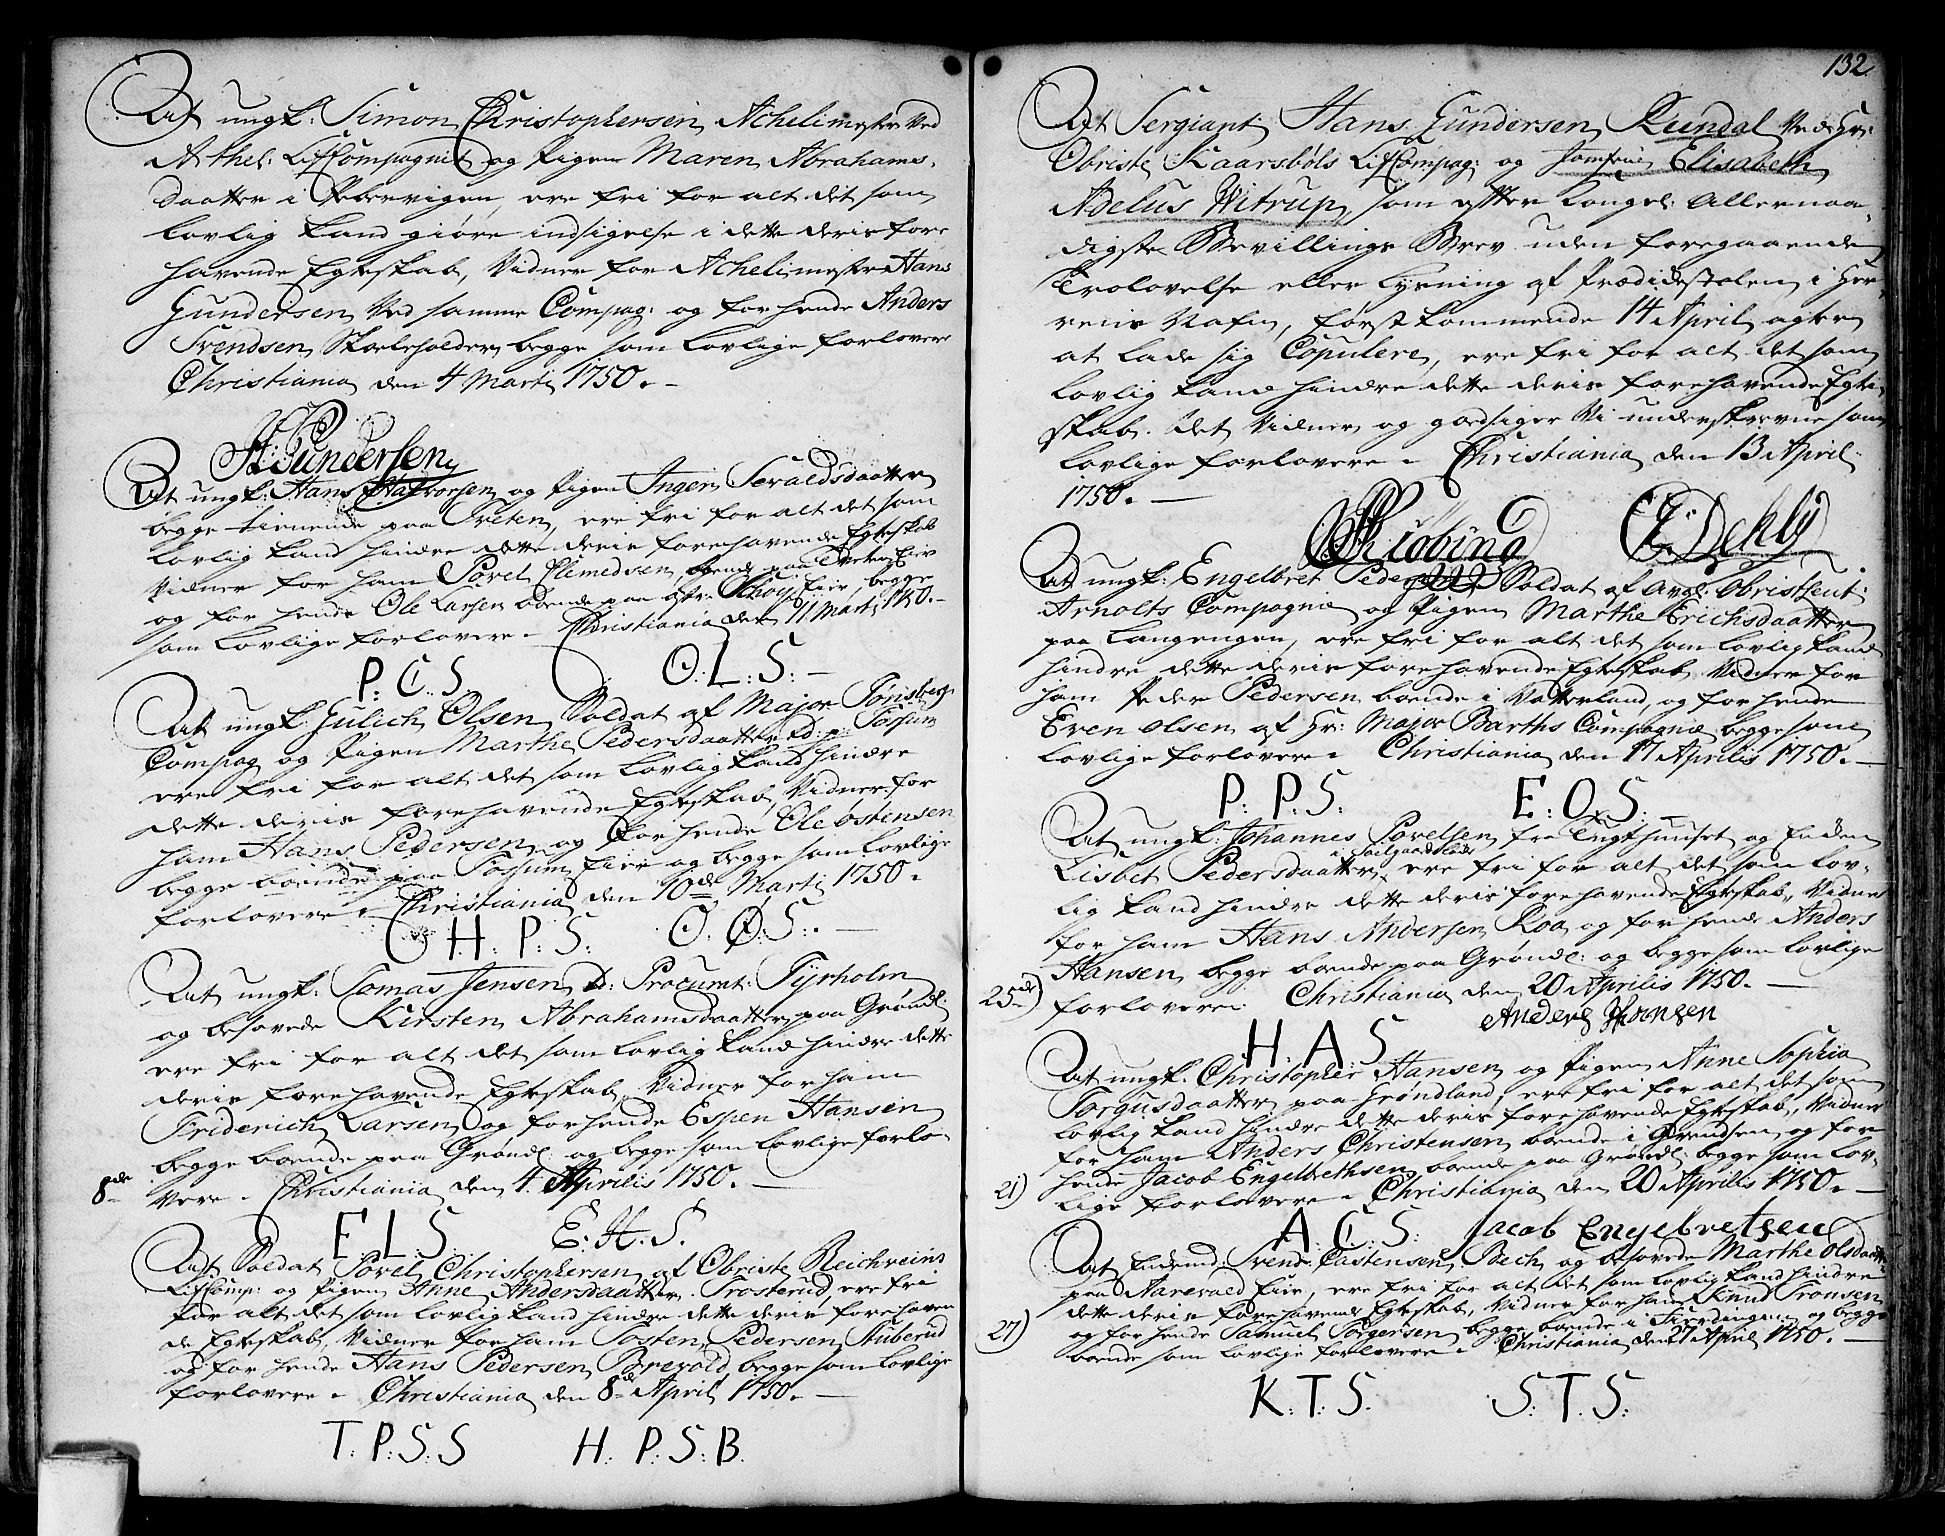 At ungk: Simon Christophersen Achelimester Ved
Arthel: LifCompagniet og Pigen Maren Abrahams-
daatter i Pebervigen, ere fri for alt det som
lovlig kand giøre indsigelse i dette deris fore
havende Egteskab, Vidner for Achelimester Hans
Gundersen Ved samme Compag: og for hende Anders
Svendsen begge som lovlige forlovere
Christiania den 4 Marti 1750.
H Gundersen
At ungk: Hans Halvorsen og Pigen Inger Seraldsdaatter
begge tienende paa Tveten, ere fri for alt det som
lovlig kand hindre dette deris forehavende Egteskab
Vidner for ham Povel Clemedsen, boende paa Tveten Eier
og for hende Ole Larsen boende paa Eier, begge
som lovlige forlovere. Christiania den 11 Marti 1750.
P: C: S. O: L: S:
At ungk: Gulich Olsen Soldat af Major Tonsberg
Compag og Pigen Marthe Pedersdaatter ibd: p: Fossum
ere fri for alt det som lovlig kand hindre
dette deris forehavende Egteskab, Vidner for
ham Hans Pedersen og for hende Ole Østensen
begge boende paa Fossum Eier og begge som lovlige
forlovere. Christiania den 10de Marti 1750.
H. P: S: O: Ø: S:
At ungk: Tomas Jensen Procurat: Tyrholm
og besovede Kirsten Abrahamsdaatter paa Grønl:
ere fri for alt det som lovlig kand hindre dette
deris forehavende Egteskab, Vidner for ham
Friderich Larsen og for hende Espen Hansen
begge boende paa Grønl: og begge som lovlige forlo-
8de vere. Christiania den 4. Aprilis 1750.
F. L. S. E: H. S.
At Soldat Povel Christophersen af Obriste Reichweins
LifComp: og Pigen Anne Andersdaatter Trosterud, ere fri
for alt det som lovlig kand hindre dette deris forehaven
de Egteskab, Vidner for ham Tosten Pedersen Stuberud
og for hende Hans Pedersen Brevold, begge som lovlige
forlovere. Christiania den 8de April 1750.
T: P: S: S H. P: S: B.
132.
At Sergiant Hans Gundersen Rundal Ved Hr:
Obriste Kaarsbøls LifCompag: og Jomfrue Elisabeth
Adelus Witrup, som efter Kongel: Allernaa-
digste Bevillings Brev uden foregaaende
Trolovelse eller Lysning af Prædikestolen, i Her-
rens Nafn, først kommende 14 April agter
at lade sig Copulere, ere fri for alt det som
lovlig kand hindre dette deris forehavende Egte-
skab. Det Vidner og godsiger Vi underskrevne som
lovlige forlovere. Christiania den 13 April:
1750.
Kiøbing
At ungk: Engelbret Pedersen Soldat af Obristleut:
Arnolts Compagnie og Pigen Marthe Erichsdaatter
paa Langengen, ere fri for alt det som lovlig kand
hindre dette deris forehavende Egteskab, Vidner for
ham Peder Pedersen boende i Vatterland, og for hende
Even Olsen af Hr: Major Barths Compagnie begge som
lovlige forlovere. Christiania den 17 Aprilis 1750.
P: P: S: E: O: S:
At ungk: Johannes Povelsen fra Tugthuuset og Enken
Lisbet Pedersdaatter, ere fri for alt det som lov-
lig kand hindre dette deris forehavende Egteskab, Vidner
for ham Hans Andersen Roa og for hende Anders
Hansen, begge boende paa Grønl: og begge som lovlige
25de) forlovere. Christiania den 20 Aprilis 1750.
H. A: S Anders Hansen
At ungk: Christopher Hansen og Pigen Anne Sophia
Torgusdaatter paa Grønland, ere fri for alt det som
lovlig kand hindre dette deris forehavende Egteskab, Vidner
for ham Anders Christensen, boende i Grendsen, og for
hende Jacob Engelbrethsen boende paa Grønl: begge som lov-
21) lige forlovere. Christiania den 20 Aprilis 1750.
A. C: S: Jacob Engelbretsen
At Enkemd: Svend Castensen Bech og besovede Marthe Olsdaatter
paa Aarevold Eier, ere fri for alt det som lovlig kand hindre
dette deris forehavende Egteskab, Vidner for ham Knud Tronsen
og for hende Samuel Torgersen begge boende i og begge
27) boende som lovlige forlovere. Christiania den 27 April 1750.
K: T: S. S: T: S: